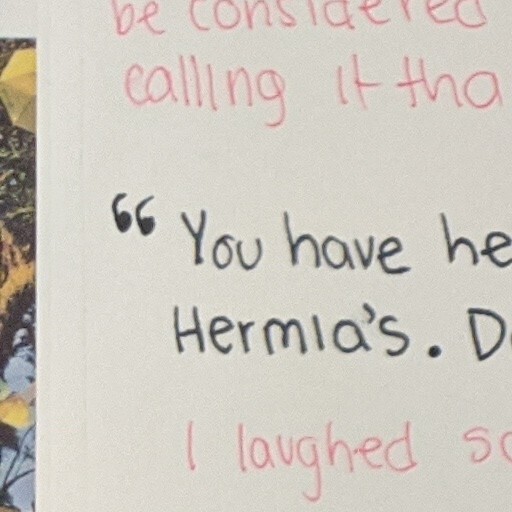 be considered
calling it tha
“You have he
Hermia's. D
I laughed so